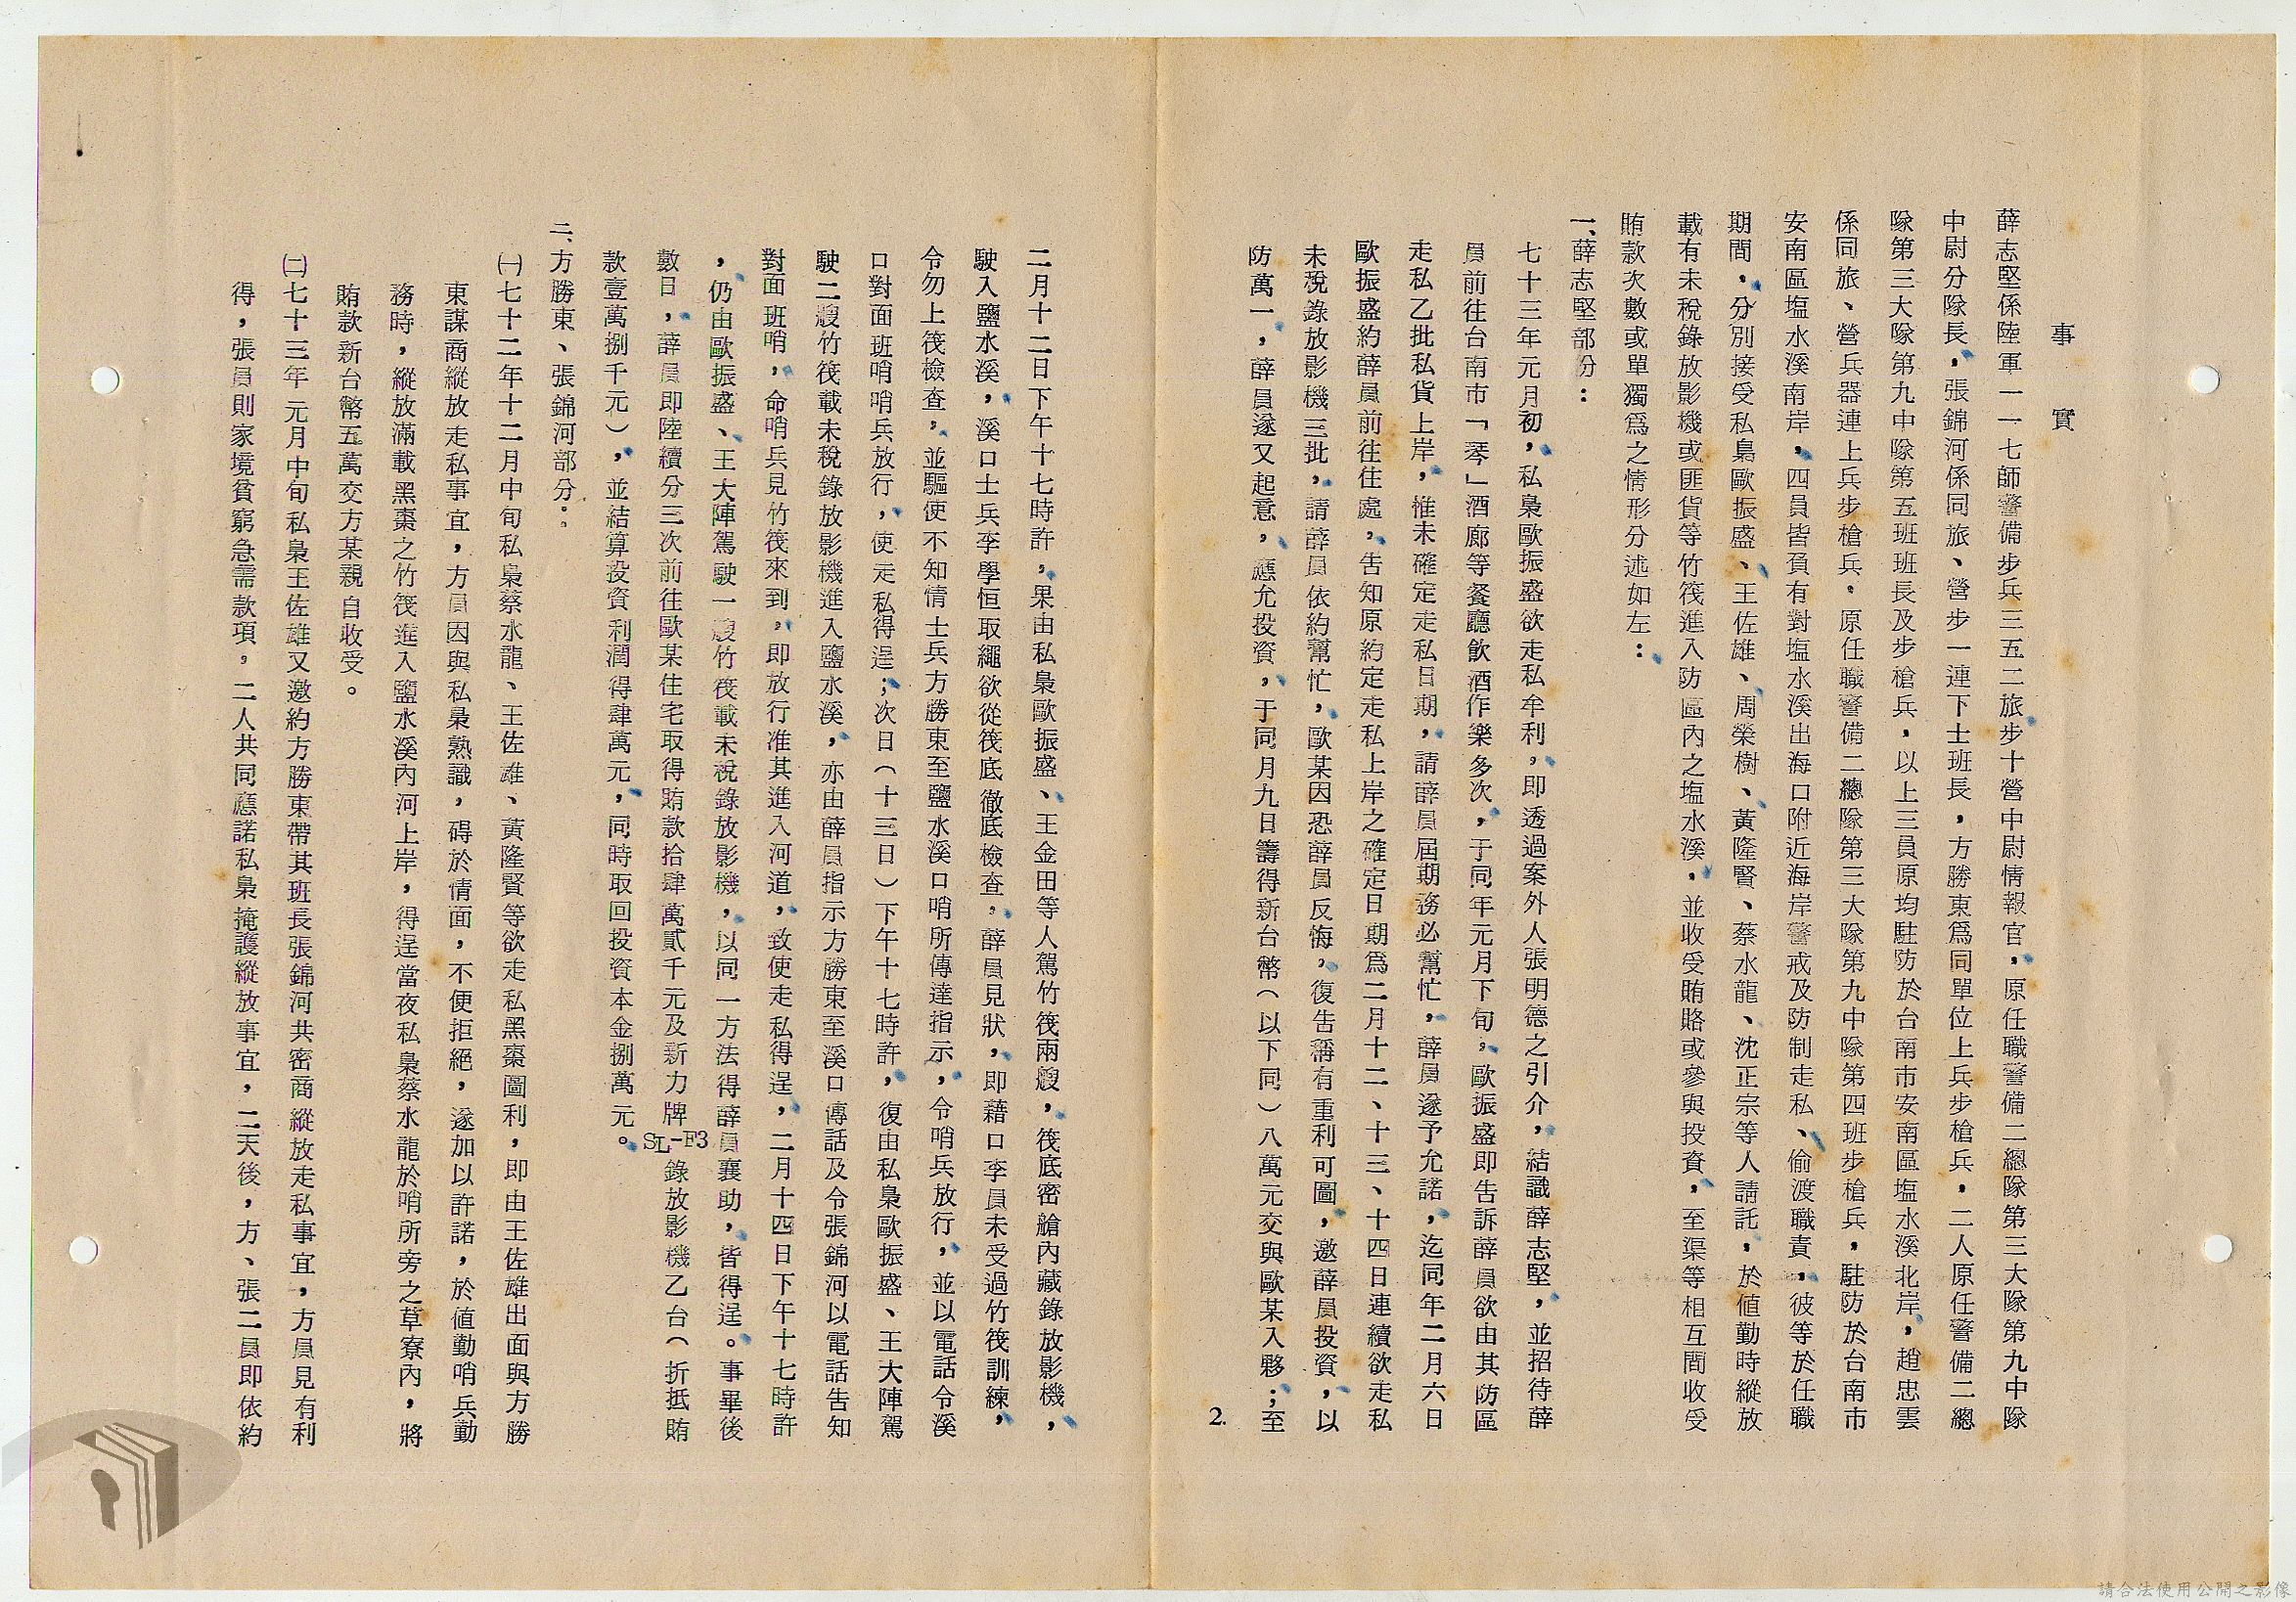 事實
薛志堅係陸軍一一七師警備步兵三五二旅步十營中尉情報官，原任職警備二總隊第三大隊第九中隊
中尉分隊長，張錦河係同旅、營步一連下士班長，方勝東為同單位上兵步槍兵，二人原任警備二總
隊第三大隊第九中隊第五班班長及步槍兵，以上三員原均駐防於台南市安南區塩水溪北岸，趙忠雲
係同旅、營兵器連上兵步槍兵。原任職警備二總隊第三大隊第九中隊第四班步槍兵，駐防於台南市
安南區塩水溪南岸，四員皆負有對塩水溪出海口附近海岸警戒及防制走私、偷渡職責，彼等於任職
期間，分別接受私梟歐振盛、王佐雄、周榮樹、黃隆賢、蔡水龍、沈正宗等人請託，於值勤時縱放
載有未稅錄放影機或匪貨等竹筏進入防區內之塩水溪，並收受賄賂或參與投資，至渠等相互間收受
賄款次數或單獨為之情形分述如左：
一、薛志堅部份：
七十三年元月初，私梟歐振盛欲走私牟利，即透過案外人張明德之引介，結識薛志堅，並招待薛
員前往台南市「琴」酒廊等餐廳飲酒作樂多次，于同年元月下旬，歐振盛即告訴薛員欲由其防區
走私乙批私貨上岸，惟未確定走私日期，請薛員屆期務必幫忙，薛員遂予允諾，迄同年二月六日
歐振盛約薛員前往住處，告知原約定走私上岸之確定日期為二月十二、十三、十四日連續欲走私
未稅錄放影機三批，請薛員依約幫忙，歐某因恐薛員反悔，復告稱有重利可圖，邀薛員投資，以
防萬一，薛員遂又起意，應允投資，于同月九日籌得新台幣（以下同）八萬元交與歐某入夥；至
2.
二月十二日下午十七時許，果由私梟歐振盛、王金田等人駕竹筏兩艘，筏底密艙內藏錄放影機，
駛入鹽水溪，溪口士兵李學恒取繩欲從筏底徹底檢查，薛員見狀，即藉口李員未受過竹筏訓練，
令勿上筏檢查，並驅使不知情士兵方勝東至鹽水溪口哨所傳達指示，令哨兵放行，並以電話令溪
口對面班哨哨兵放行，使走私得逞；次日（十三日）下午十七時許，復由私梟歐振盛、王大陣駕
駛二艘竹筏載未稅錄放影機進入鹽水溪，亦由薛員指示方勝東至溪口傳話及令張錦河以電話告知
對面班哨，命哨兵見竹筏來到，即放行准其進入河道，致使走私得逞，二月十四日下午十七時許
，仍由歐振盛、王大陣駕駛一艘竹筏載未稅錄放影機，以同一方法得薛員襄助，皆得逞。事畢後
數日，薛員即陸續分三次前往歐某住宅取得賄款拾肆萬貳千元及新力牌SL-F3錄放影機乙台（折抵賄
款壹萬捌千元），並結算投資利潤得肆萬元，同時取回投資本金捌萬元。
二、方勝東、張錦河部分：
㈠七十二年十二月中旬私梟蔡水龍、王佐雄、黃隆賢等欲走私黑棗圖利，即由王佐雄出面與方勝
東謀商縱放走私事宜，方員因與私梟熟識，碍於情面，不便拒絕，遂加以許諾，於值勤哨兵勤
務時，縱放滿載黑棗之竹筏進入鹽水溪內河上岸，得逞當夜私梟蔡水龍於哨所旁之草寮內，將
賄款新台幣五萬交方某親自收受。
㈡七十三年元月中旬私梟王佐雄又邀約方勝東帶其班長張錦河共密商縱放走私事宜，方員見有利
得，張員則家境貧窮急需款項，二人共同應諾私梟掩護縱放事宜，二天後，方、張二員即依約
請合法使用公開之影像